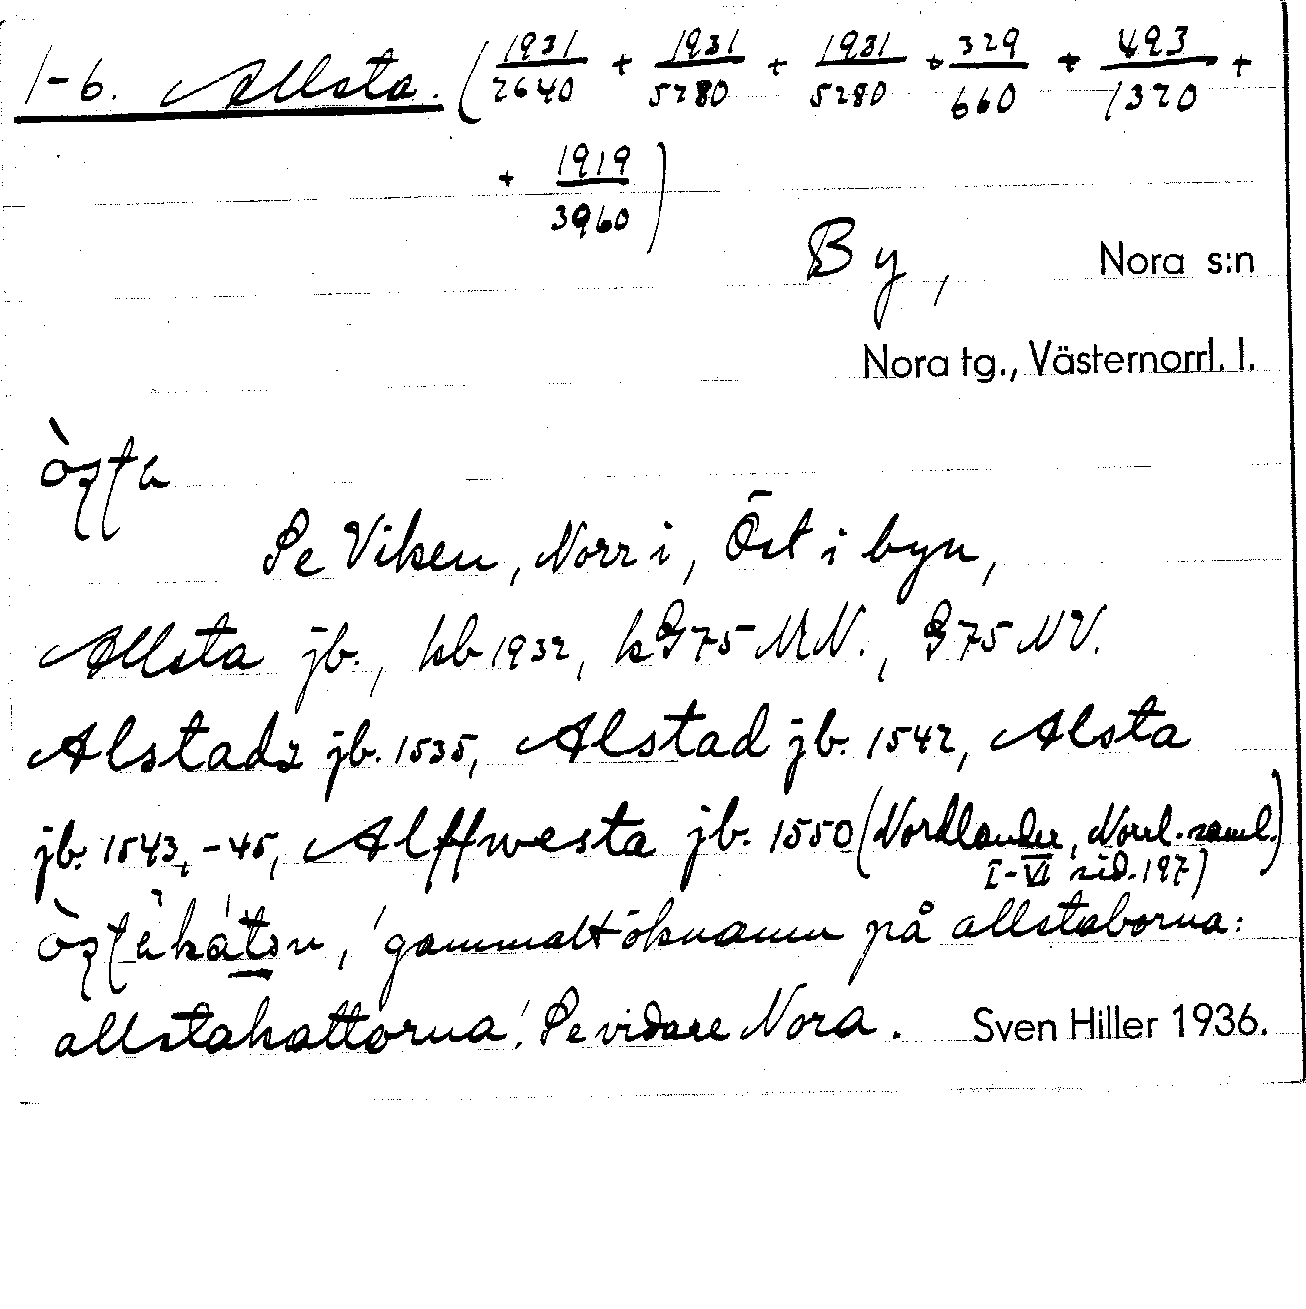 1-6. Allsta. (1931/2640 + 1931/5280 + 1931/5280 + 329/660 + 493/1320 +
+ 1919/3960)
By, Nora s:n
Nora tg., Västernorrl. l.
Se Viken, Norr i, Öst i byn,
Allsta jb., kb 1932, kG75 MN., G75 NV.
Alstadz jb. 1535, Alstad jb. 1542, Alsta
jb. 1543, -45, Alffwesta jb. 1550 (Nordlander, Norrl. saml.)
I-VI sid. 197)
'gammalt öknamn på allstaborna:
allstakattorna'. Se vidare Nora. Sven Hiller 1936.